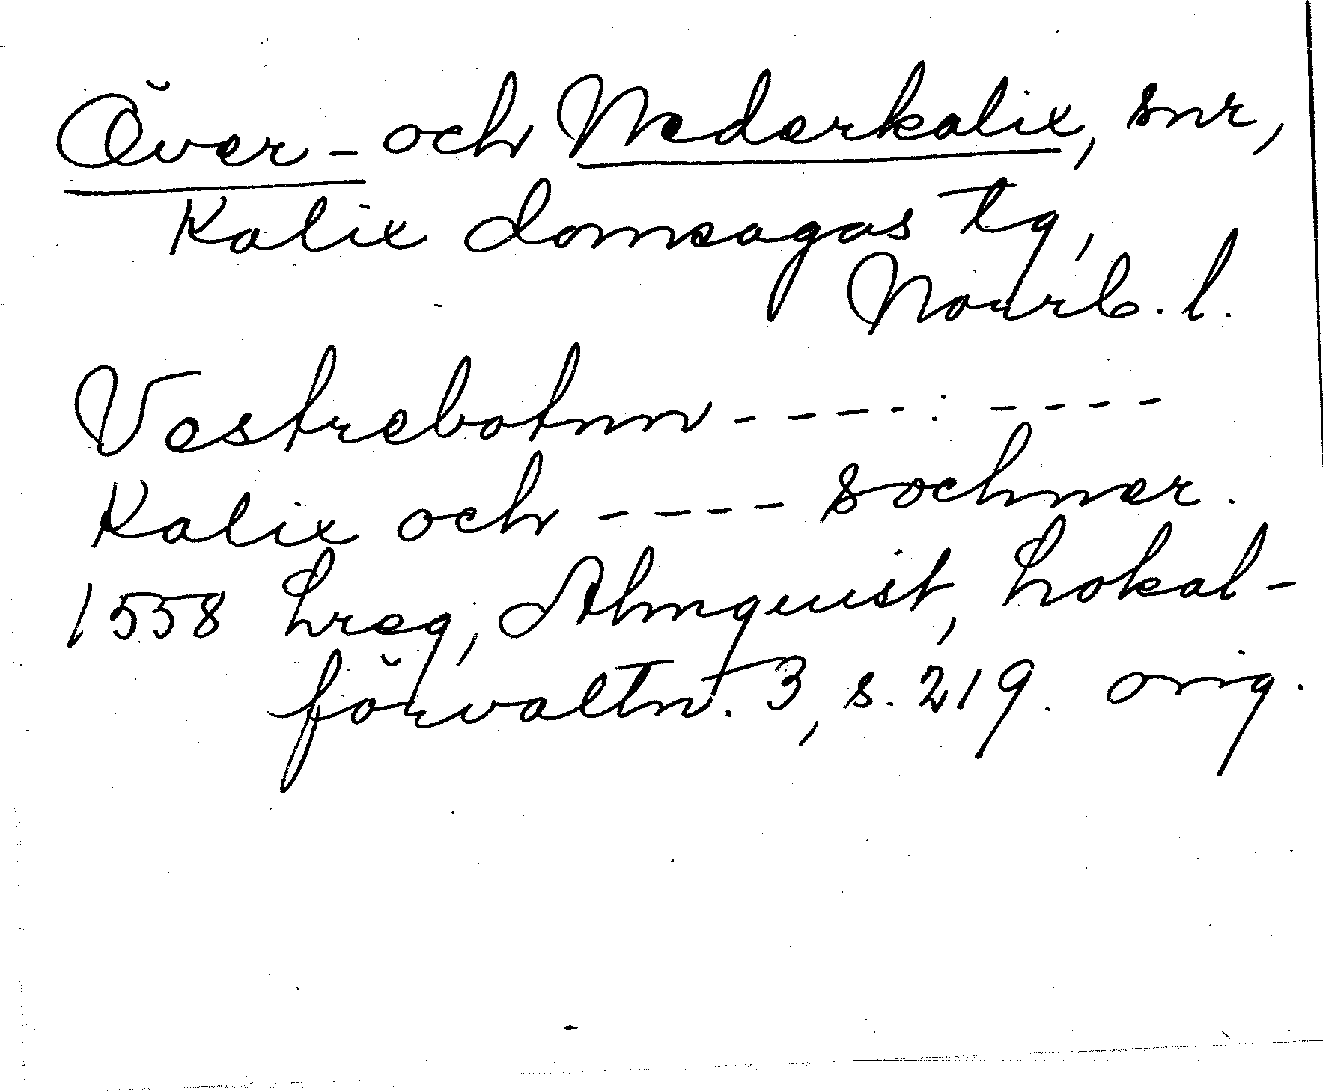 Över- och Nederkalix, snr,
Kalix domsagas tg,
Norrb. l.
Vestrebotnn ----:----
Kalix och ---- sochner.
1558 Lreg, Almquist, Lokal-
förvaltn. 3, s. 219. orig.